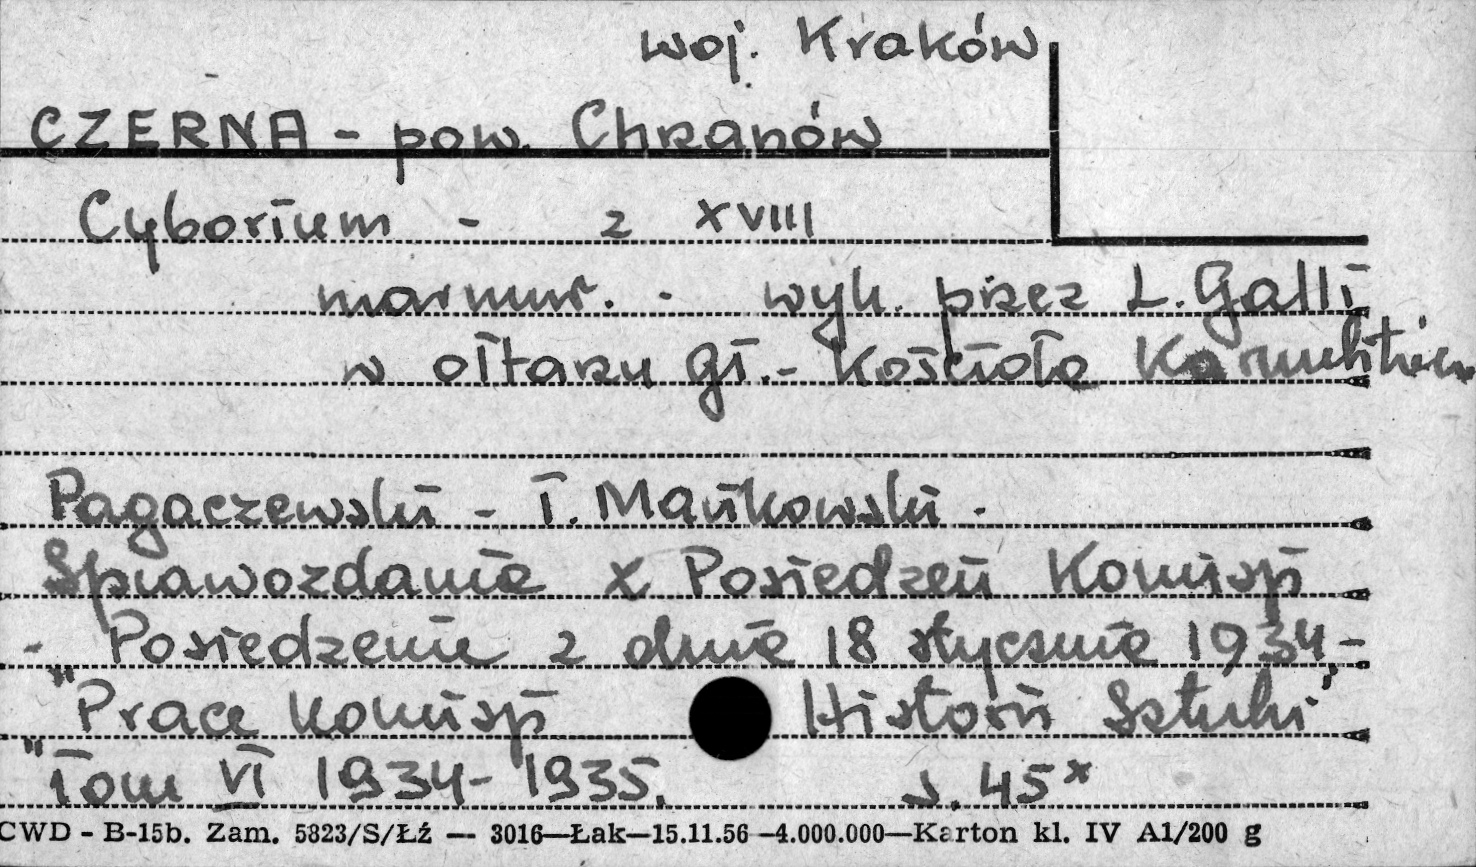 woj. Kraków
CZERNA - pow. Chrzanów
Cyborium - z XVIII
marmur. - wyk. przez L. Galli
w ołtarzu gł. - Kościoła Karmelitów
Pagaczewski - T. Mańkowski -
Sprawozdania z Posiedzeń Komisji
- Posiedzenie z dnia 18 stycznia 1934 -
"Prace Komisji Historii Sztuki"
"Tom VI 1934 - 1935. s. 45*
CWD - B-15b. Zam. 5823/S/Łź — 3016—Łak—15.11.56 —4.000.000—Karton kl. IV A1/200 g